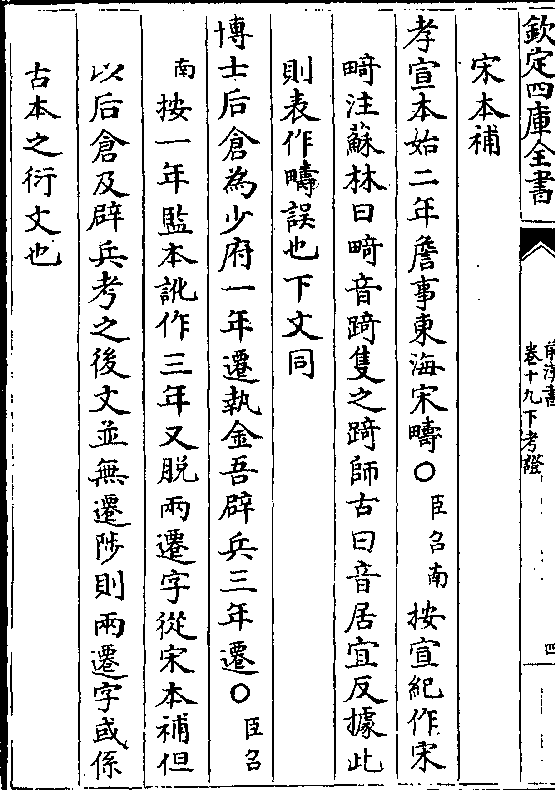 欽定四庫全書
前漢書
卷十九下考證
四
宋本補
孝宣本始二年詹事東海宋疇〇臣召南按宣紀作宋
畸注蘇林曰畸音踦隻之踦師古曰音居宜反據此
則表作疇誤也下文同
博士后倉為少府一年遷執金吾辟兵三年遷〇臣召
南按一年監本訛作三年又脱兩遷字從宋本補但
以后倉及辟兵考之後文並無遷陟則兩遷字或係
古本之衍文也